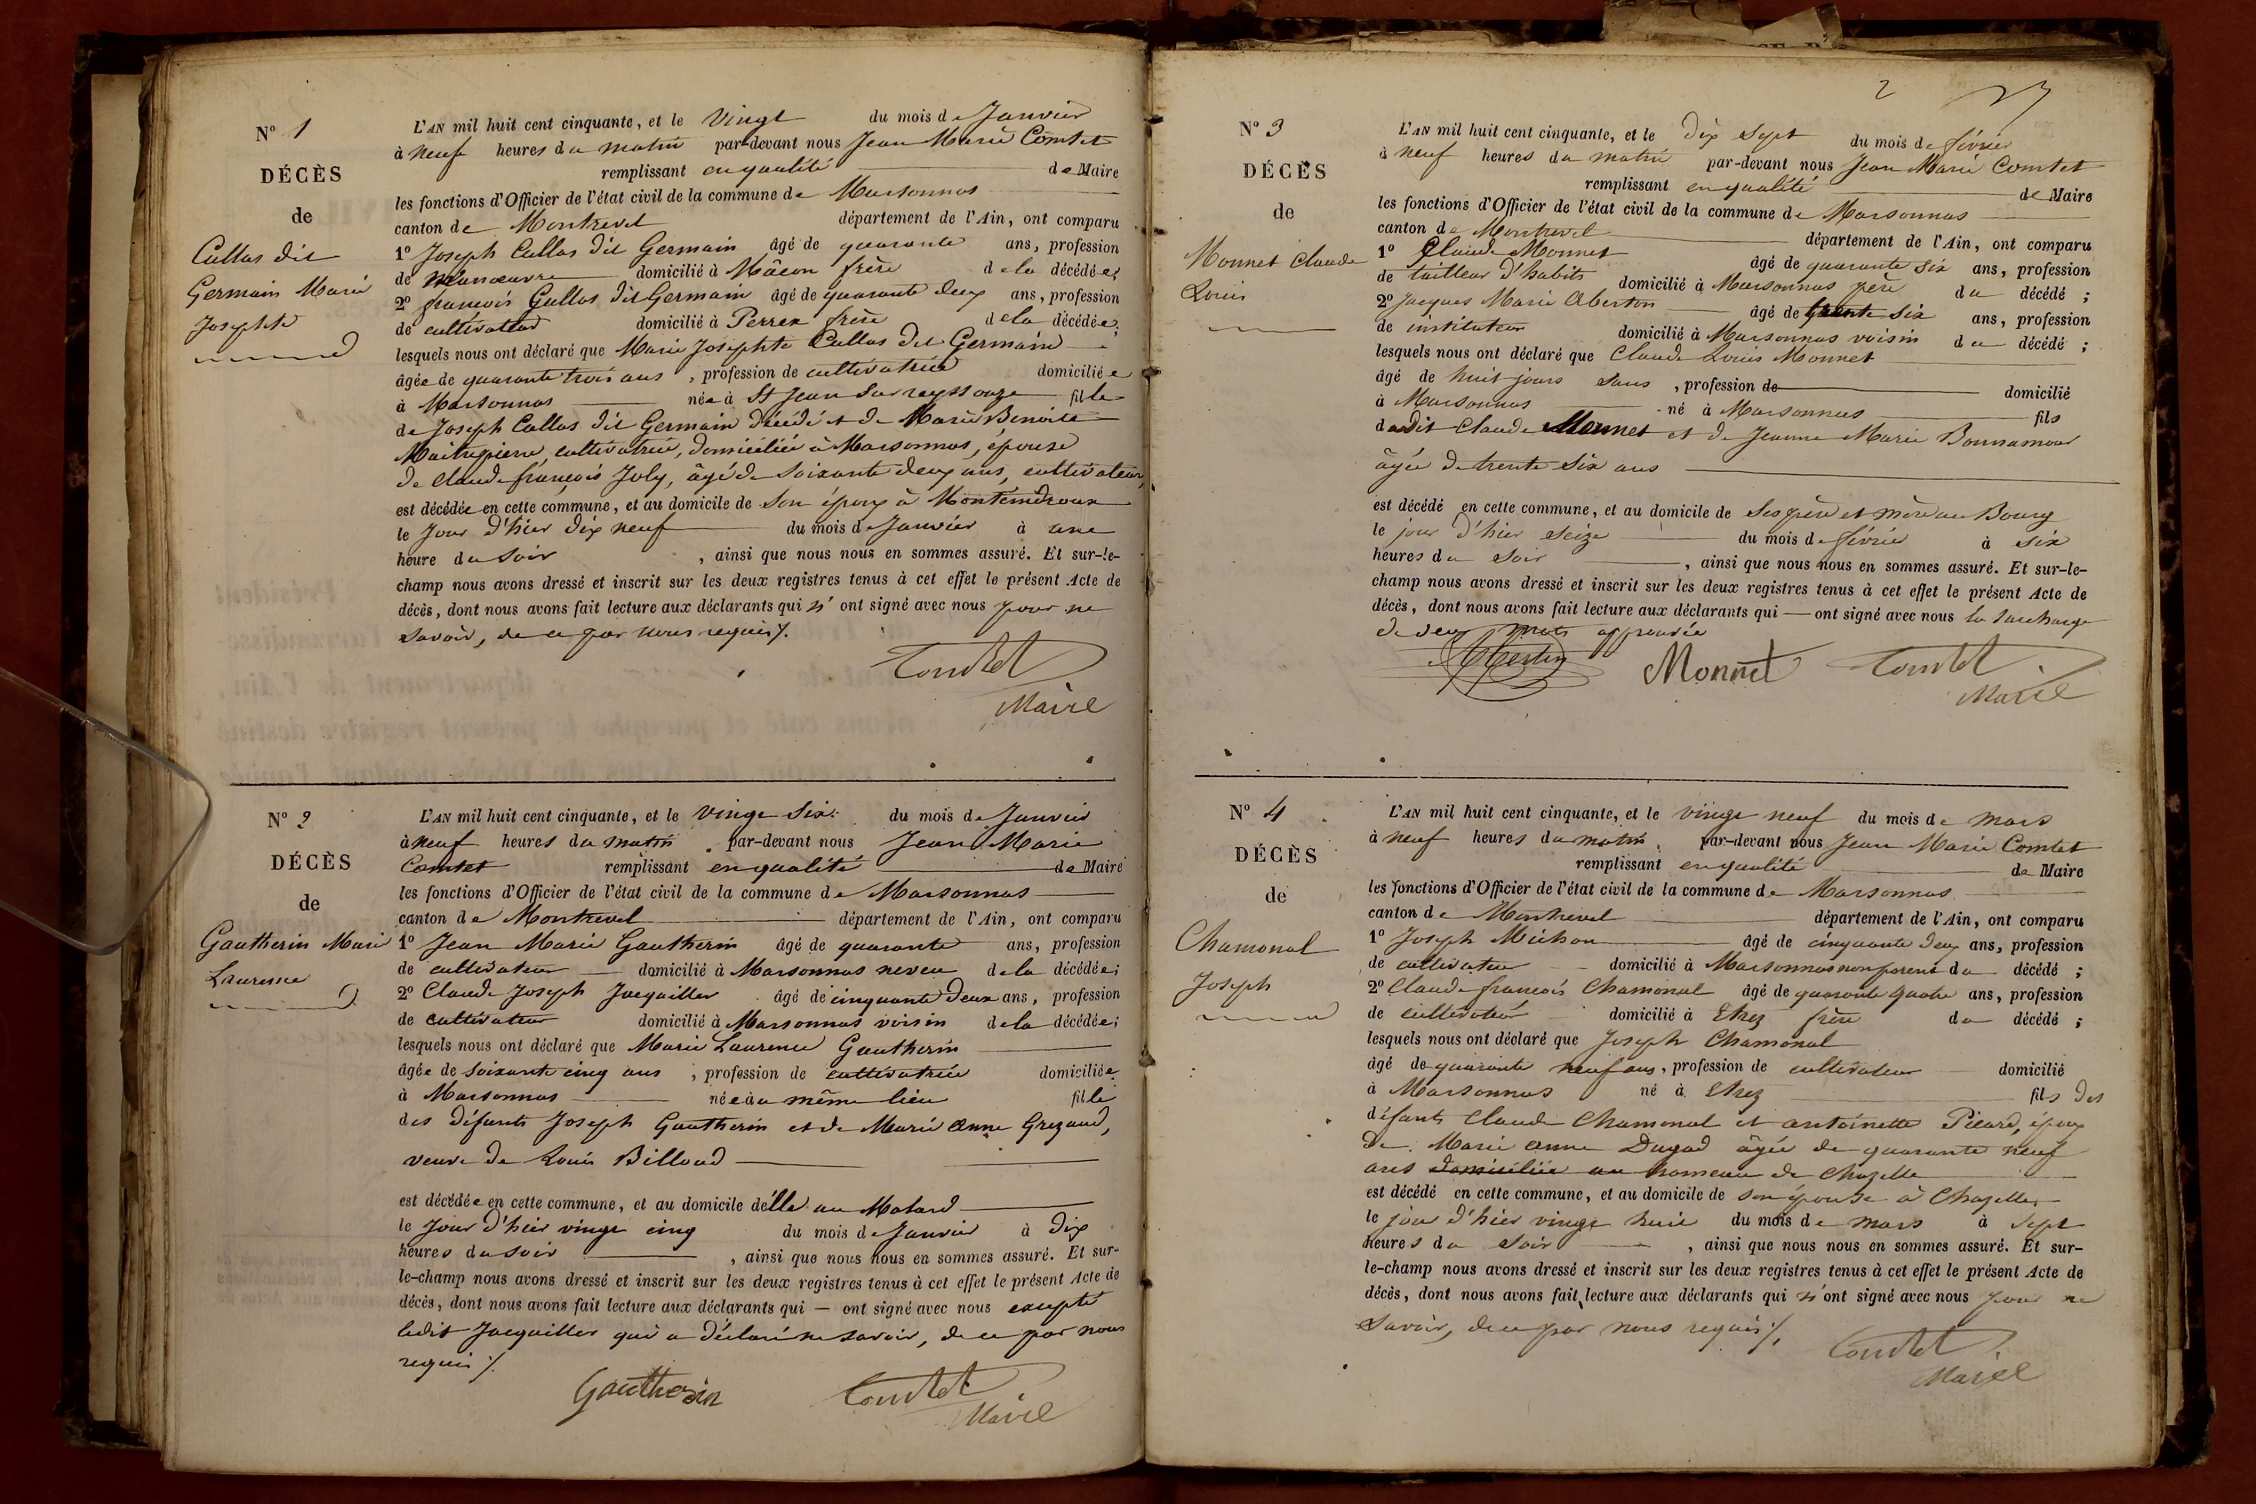 N° 1
DÉCÈS
de
Cullas dit
Germain Marie
Josephte
L'AN mil huit cent cinquante, et le vingt du mois de Janvier
à neuf heures du matin par-devant nous Jean Marie Comtet
remplissant en qualité de Maire
les fonctions d'Officier de l'état civil de la commune de Marsonnas
canton de Montrevel département de l'Ain, ont comparu
1° Joseph Cullas dit Germain âgé de quarante ans, profession
de manœuvre domicilié à Mâcon frère de la décédée;
2° françois Cullas dit Germain âgé de quarante deux ans, profession
de cultivateur domicilié à Perrex frère de la décédée;
lesquels nous ont déclaré que Marie Josephte Cullas dit Germain
âgée de quarante trois ans, profession de cultivatrice domiciliée
à Marsonnas née à St Jean sur reyssouze fille
de Joseph Cullas dit Germain décédé et de Marie Benoite
Maitrepierre, cultivatrice, domiciliée à Marsonnas, épouse
de Claude françois Joly, âgé de soixante deux ans, cultivateur,
est décédée en cette commune, et au domicile de son époux à Montémdroux
le Jour d'hier dix neuf du mois de Janvier à une
heure du soir, ainsi que nous nous en sommes assuré. Et sur-le-
champ nous avons dressé et inscrit sur les deux registres tenus à cet effet le présent Acte de
décès, dont nous avons fait lecture aux déclarants qui n'ont signé avec nous pour ne
savoir, de ce par nous requis ./.
Comtet
Maire
N° 2
DÉCÈS
de
Gautherin Marie
Laurence
L'AN mil huit cent cinquante, et le vingt six du mois de Janvier
à neuf heures du matin par-devant nous Jean Marie
Comtet remplissant en qualité de Maire
les fonctions d'Officier de l'état civil de la commune de Marsonnas
canton de Montrevel département de l'Ain, ont comparu
1° Jean Marie Gautherin âgé de quarante ans, profession
de cultivateur domicilié à Marsonnas neveu de la décédée;
2° Claude Joseph Jacquiller âgé de cinquante deux ans, profession
de cultivateur domicilié à Marsonnas voisin de la décédée;
lesquels nous ont déclaré que Marie Laurence Gautherin
âgée de soixante cinq ans, profession de cultivatrice domiciliée
à Marsonnas née au même lieu fille
des défunts Joseph Gautherin et de Marie Anne Grezaud,
veuve de Louis Billoud
est décédée en cette commune, et au domicile d'elle au Molard
le Jour d'hier vingt cinq du mois de Janvier à dix
heures du soir, ainsi que nous nous en sommes assuré. Et sur-
le-champ nous avons dressé et inscrit sur les deux registres tenus à cet effet le présent Acte de
décès, dont nous avons fait lecture aux déclarants qui — ont signé avec nous excepté
ledit Jacquiller qui a déclaré ne savoir, de ce par nous
requis ./.
Gautherin
Comtet
Maire
2
N° 3
DÉCÈS
de
Monnet Claude
Louis
L'AN mil huit cent cinquante, et le dix sept du mois de février
à neuf heures du matin par-devant nous Jean Marie Comtet
remplissant en qualité de Maire
les fonctions d'Officier de l'état civil de la commune de Marsonnas
canton de Montrevel département de l'Ain, ont comparu
1° Claude Monnet âgé de quarante six ans, profession
de tailleur d'habits domicilié à Marsonnas père du décédé;
2° Jacques Marie Oberton âgé de trente six ans, profession
de instituteur domicilié à Marsonnas voisin du décédé;
lesquels nous ont déclaré que Claude Louis Monnet
âgé de huit jours sans, profession de domicilié
à Marsonnas né à Marsonnas fils
dudit Claude Monnet et de Jeanne Marie Bonnamour
âgée de trente six ans
est décédé en cette commune, et au domicile de ses père et mère au Bourg
le jour d'hier seize du mois de février à six
heures du soir, ainsi que nous nous en sommes assuré. Et sur-le-
champ nous avons dressé et inscrit sur les deux registres tenus à cet effet le présent Acte de
décès, dont nous avons fait lecture aux déclarants qui — ont signé avec nous la surcharge
de deux mots approuvée
Monnet
Comtet
Maire
N° 4
DÉCÈS
de
Chamonal
Joseph
L'AN mil huit cent cinquante, et le vingt neuf du mois de mars
à neuf heures du matin par-devant nous Jean Marie Comtet
remplissant en qualité de Maire
les fonctions d'Officier de l'état civil de la commune de Marsonnas
canton de Montrevel département de l'Ain, ont comparu
1° Joseph Michon âgé de cinquante deux ans, profession
de cultivateur domicilié à Marsonnas non parent du décédé;
2° Claude françois Chamonal âgé de quarante quatre ans, profession
de cultivateur domicilié à Etrez frère du décédé;
lesquels nous ont déclaré que Joseph Chamonal
âgé de quarante neuf ans, profession de cultivateur domicilié
à Marsonnas né à Etrez fils des
défunts Claude Chamonal et antoinette Picard, époux
de Marie Anne Dugad âgée de quarante neuf
ans domiciliée au hameau de Chazelle
est décédé en cette commune, et au domicile de son épouse à Chazelle
le jour d'hier vingt huit du mois de mars à sept
heures du soir, ainsi que nous nous en sommes assuré. Et sur-
le-champ nous avons dressé et inscrit sur les deux registres tenus à cet effet le présent Acte de
décès, dont nous avons fait lecture aux déclarants qui n'ont signé avec nous pour ne
savoir, de ce par nous requis ./.
Comtet
Maire